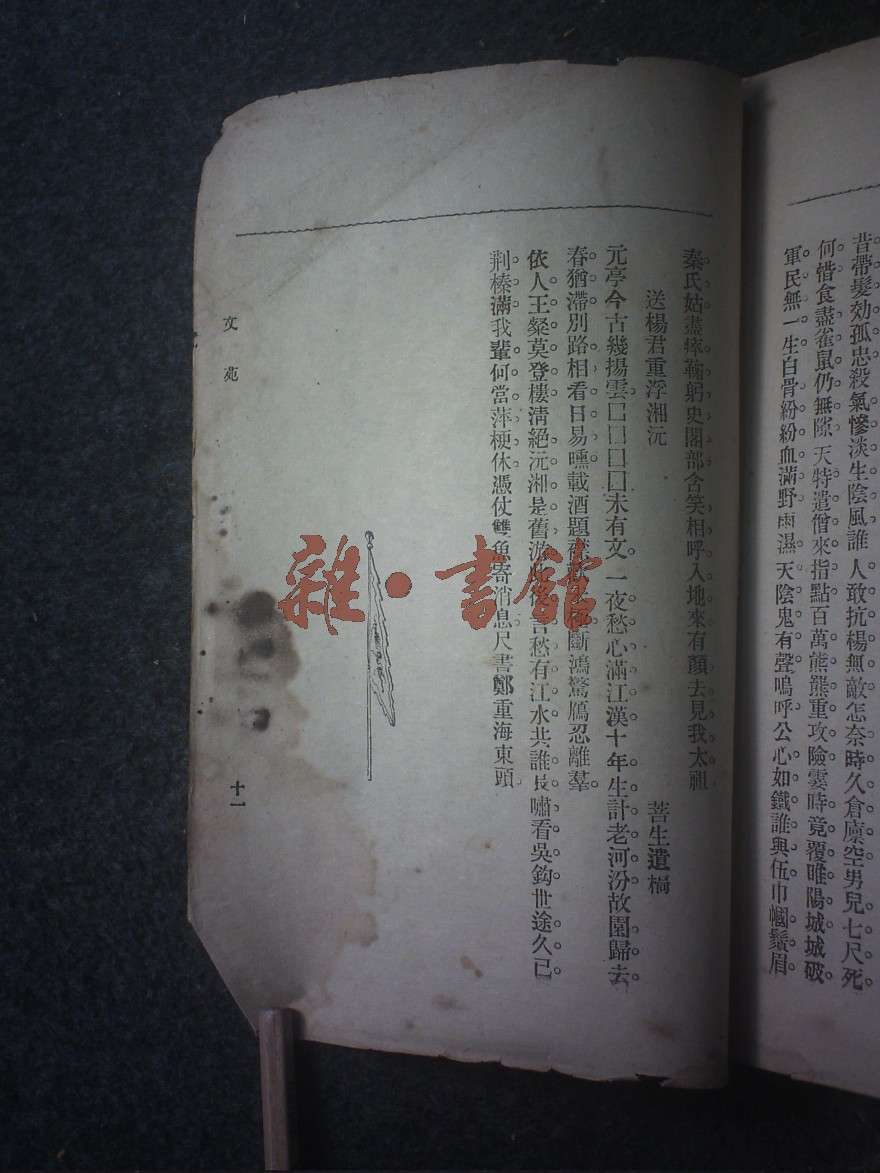 昔帶髮効孤忠殺氣慘淡生陰風誰人敢抗楊無敵怎奈時久倉廩空男兒七尺死
何惜食盡雀鼠仍無隙天特遣僧來指點百萬熊羆重攻險霎時竟覆睢陽城城破
軍民無一生白骨紛紛血滿野雨濕天陰鬼有聲嗚呼公心如鐵誰與伍巾幗鬚眉
秦氏姑盡瘁鞠躬史閣部含笑相呼入地來有顏去見我太祖
送楊君重浮湘沅 菩生遺稿
元亭今古幾揚雲口口口口未有文一夜愁心滿江漢十年生計老河汾故園歸去
春猶滯別路相看日易曛載酒題 斷鴻驚鴈忍離羣
依人王粲莫登樓淸絕沅湘是舊游 言愁有江水共誰長嘯看吳鈎世途久已
荆榛滿我輩何當萍梗休憑仗雙魚寄消息尺書鄭重海東頭
文苑
十一
雜·書館